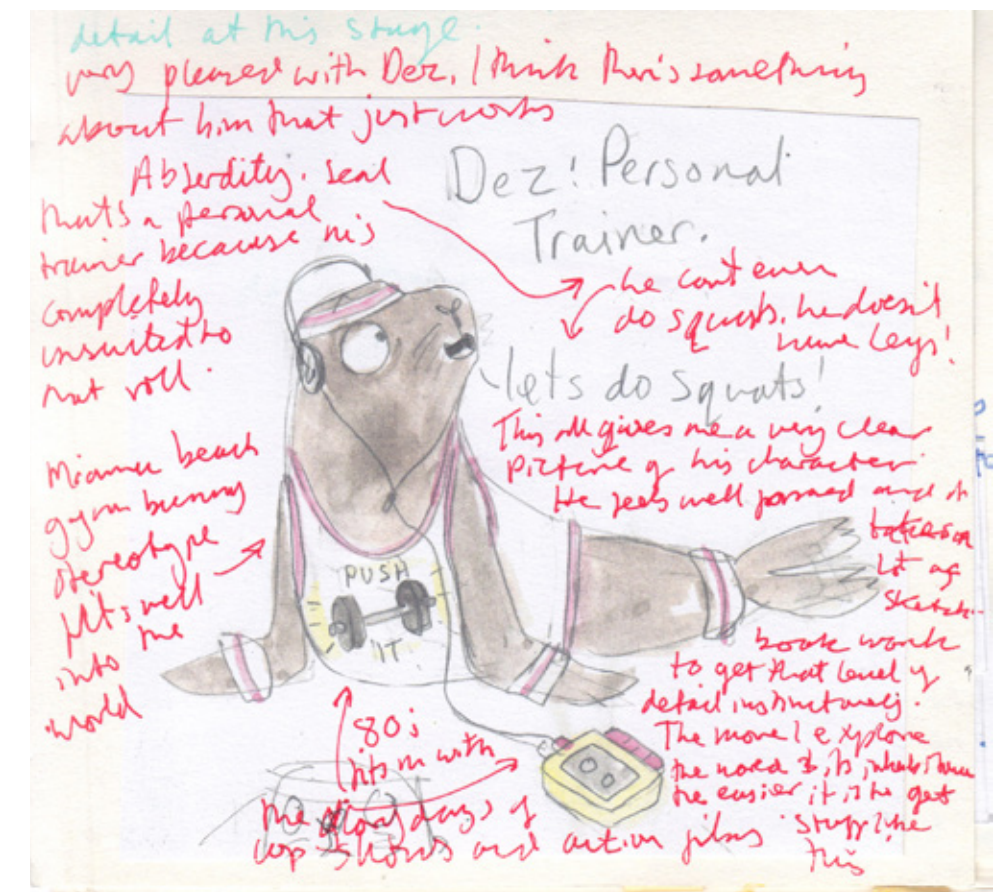 detail at this stage.
very pleased with Dez, I think there's something
about him that just works
Absurdity. seal
that's a personal
trainer because he's
completely
unsuited to
that roll.
Dez! Personal
Trainer.
he can't even
do squats. he doesn't
have legs!
lets do squats!
This all gives me a very clear
picture of his character.
He feels well formed and it
takes a
lot of
sketch-
book work
to get that level of
detail instinctively.
The more I explore
the world & its inhabitants
the easier it is to get
stuff like
this
Miami beach
gym bunny
stereotype
fits well
into the
world
PUSH
IT
80s
fits in with
the glory days of
cop shows and action films